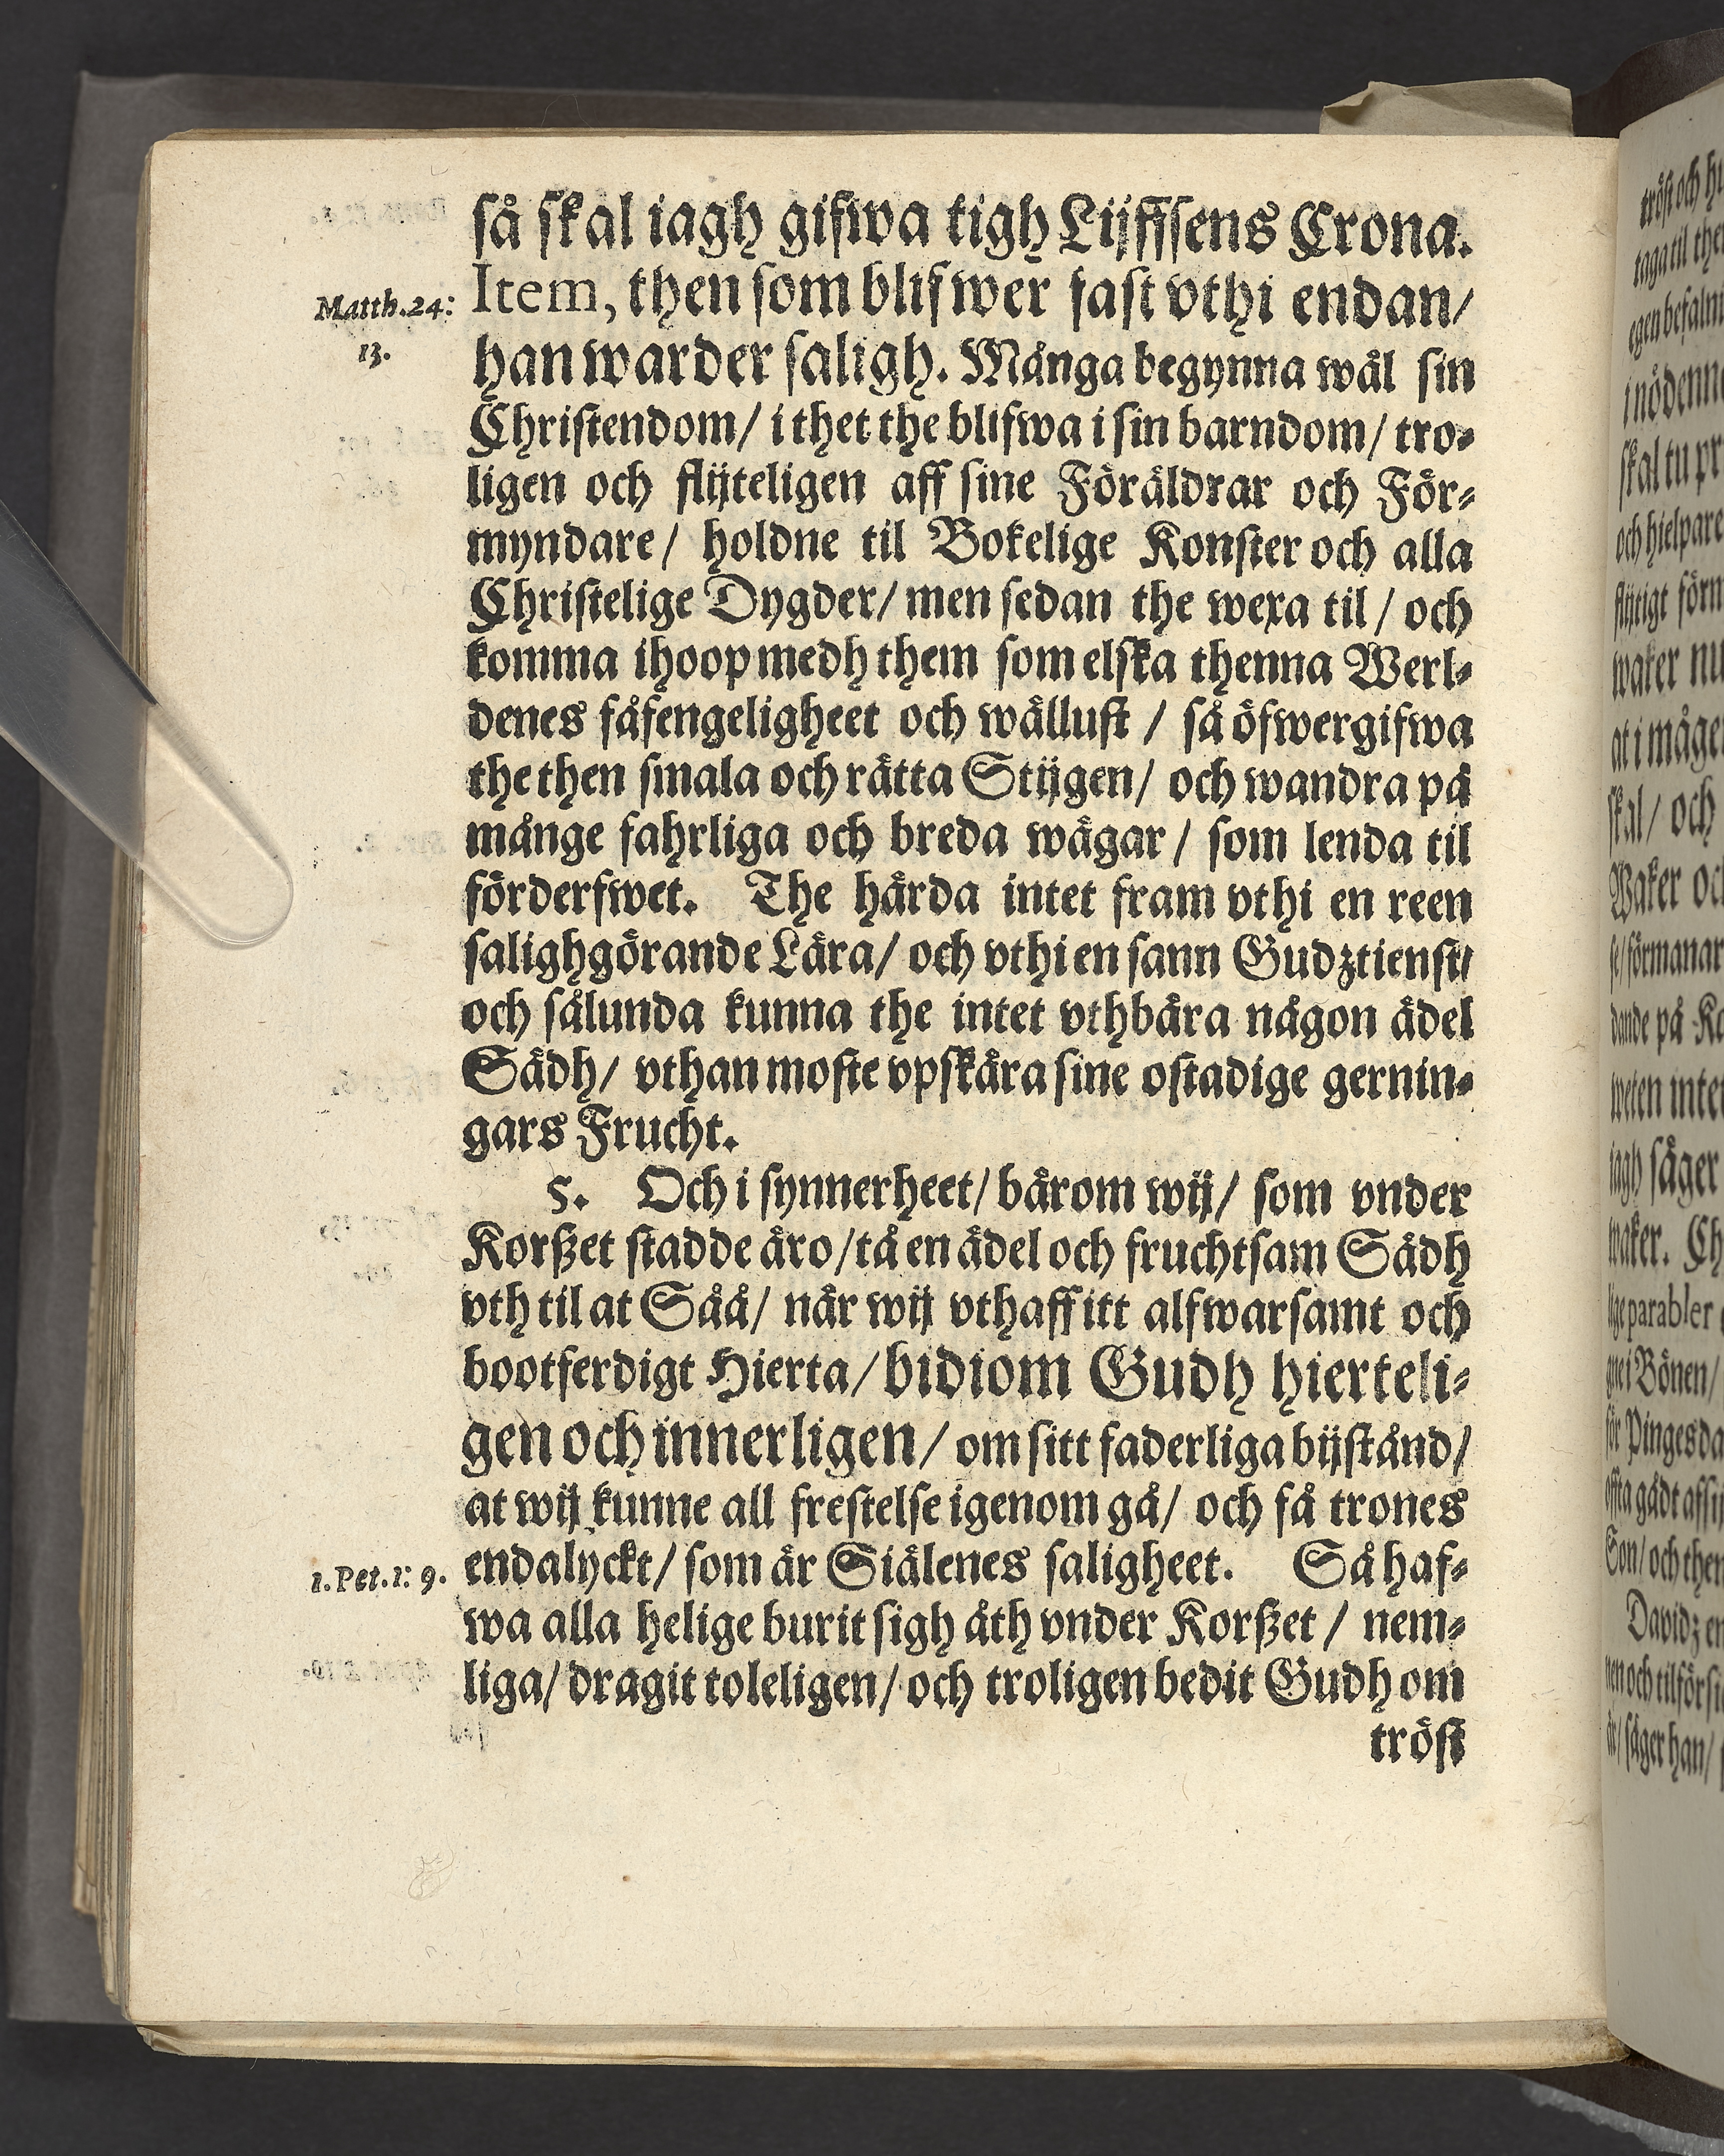 så skal iagh gifwa tigh Lijffsens Crona.
Matth.24: Item, then som blifwer fast vthi endan/
13. han warder saligh. Många begynna wäl sin
Christendom/ i thet the blifwa i sin barndom/ tro-
ligen och flijteligen aff sine Föräldrar och För-
myndare/ holdne til Bokelige Konster och alla
Christelige Dygder/ men sedan the wexa til/ och
komma ihoop medh them som elska thenna Werl-
denes fåfengeligheet och wällust/ så öfwergifwa
the then smala och rätta Stijgen/ och wandra på
månge fahrliga och breda wägar/ som lenda til
förderfwet. The härda intet fram vthi en reen
salighgörande Lära/ och vthi en sann Gudztienst/
och sålunda kunna the intet vthbära någon ädel
Sädh/ vthan moste vpskära sine ostadige gernin-
gars Frucht.
5. Och i synnerheet/ bärom wij/ som vnder
Korßet stadde äro/ tå en ädel och fruchtsam Sädh
vth til at Såå/ när wij vthaff itt alfwarsamt och
bootferdigt Hierta/ bidiom Gudh hierteli-
gen och innerligen/ om sitt faderliga bijstånd/
at wij kunne all frestelse igenom gå/ och få trones
1.Pet.1: 9. endalyckt/ som är Siälenes saligheet. Så haf-
wa alla helige burit sigh åth vnder Korßet/ nem-
liga/ dragit toleligen/ och troligen bedit Gudh om
tröst